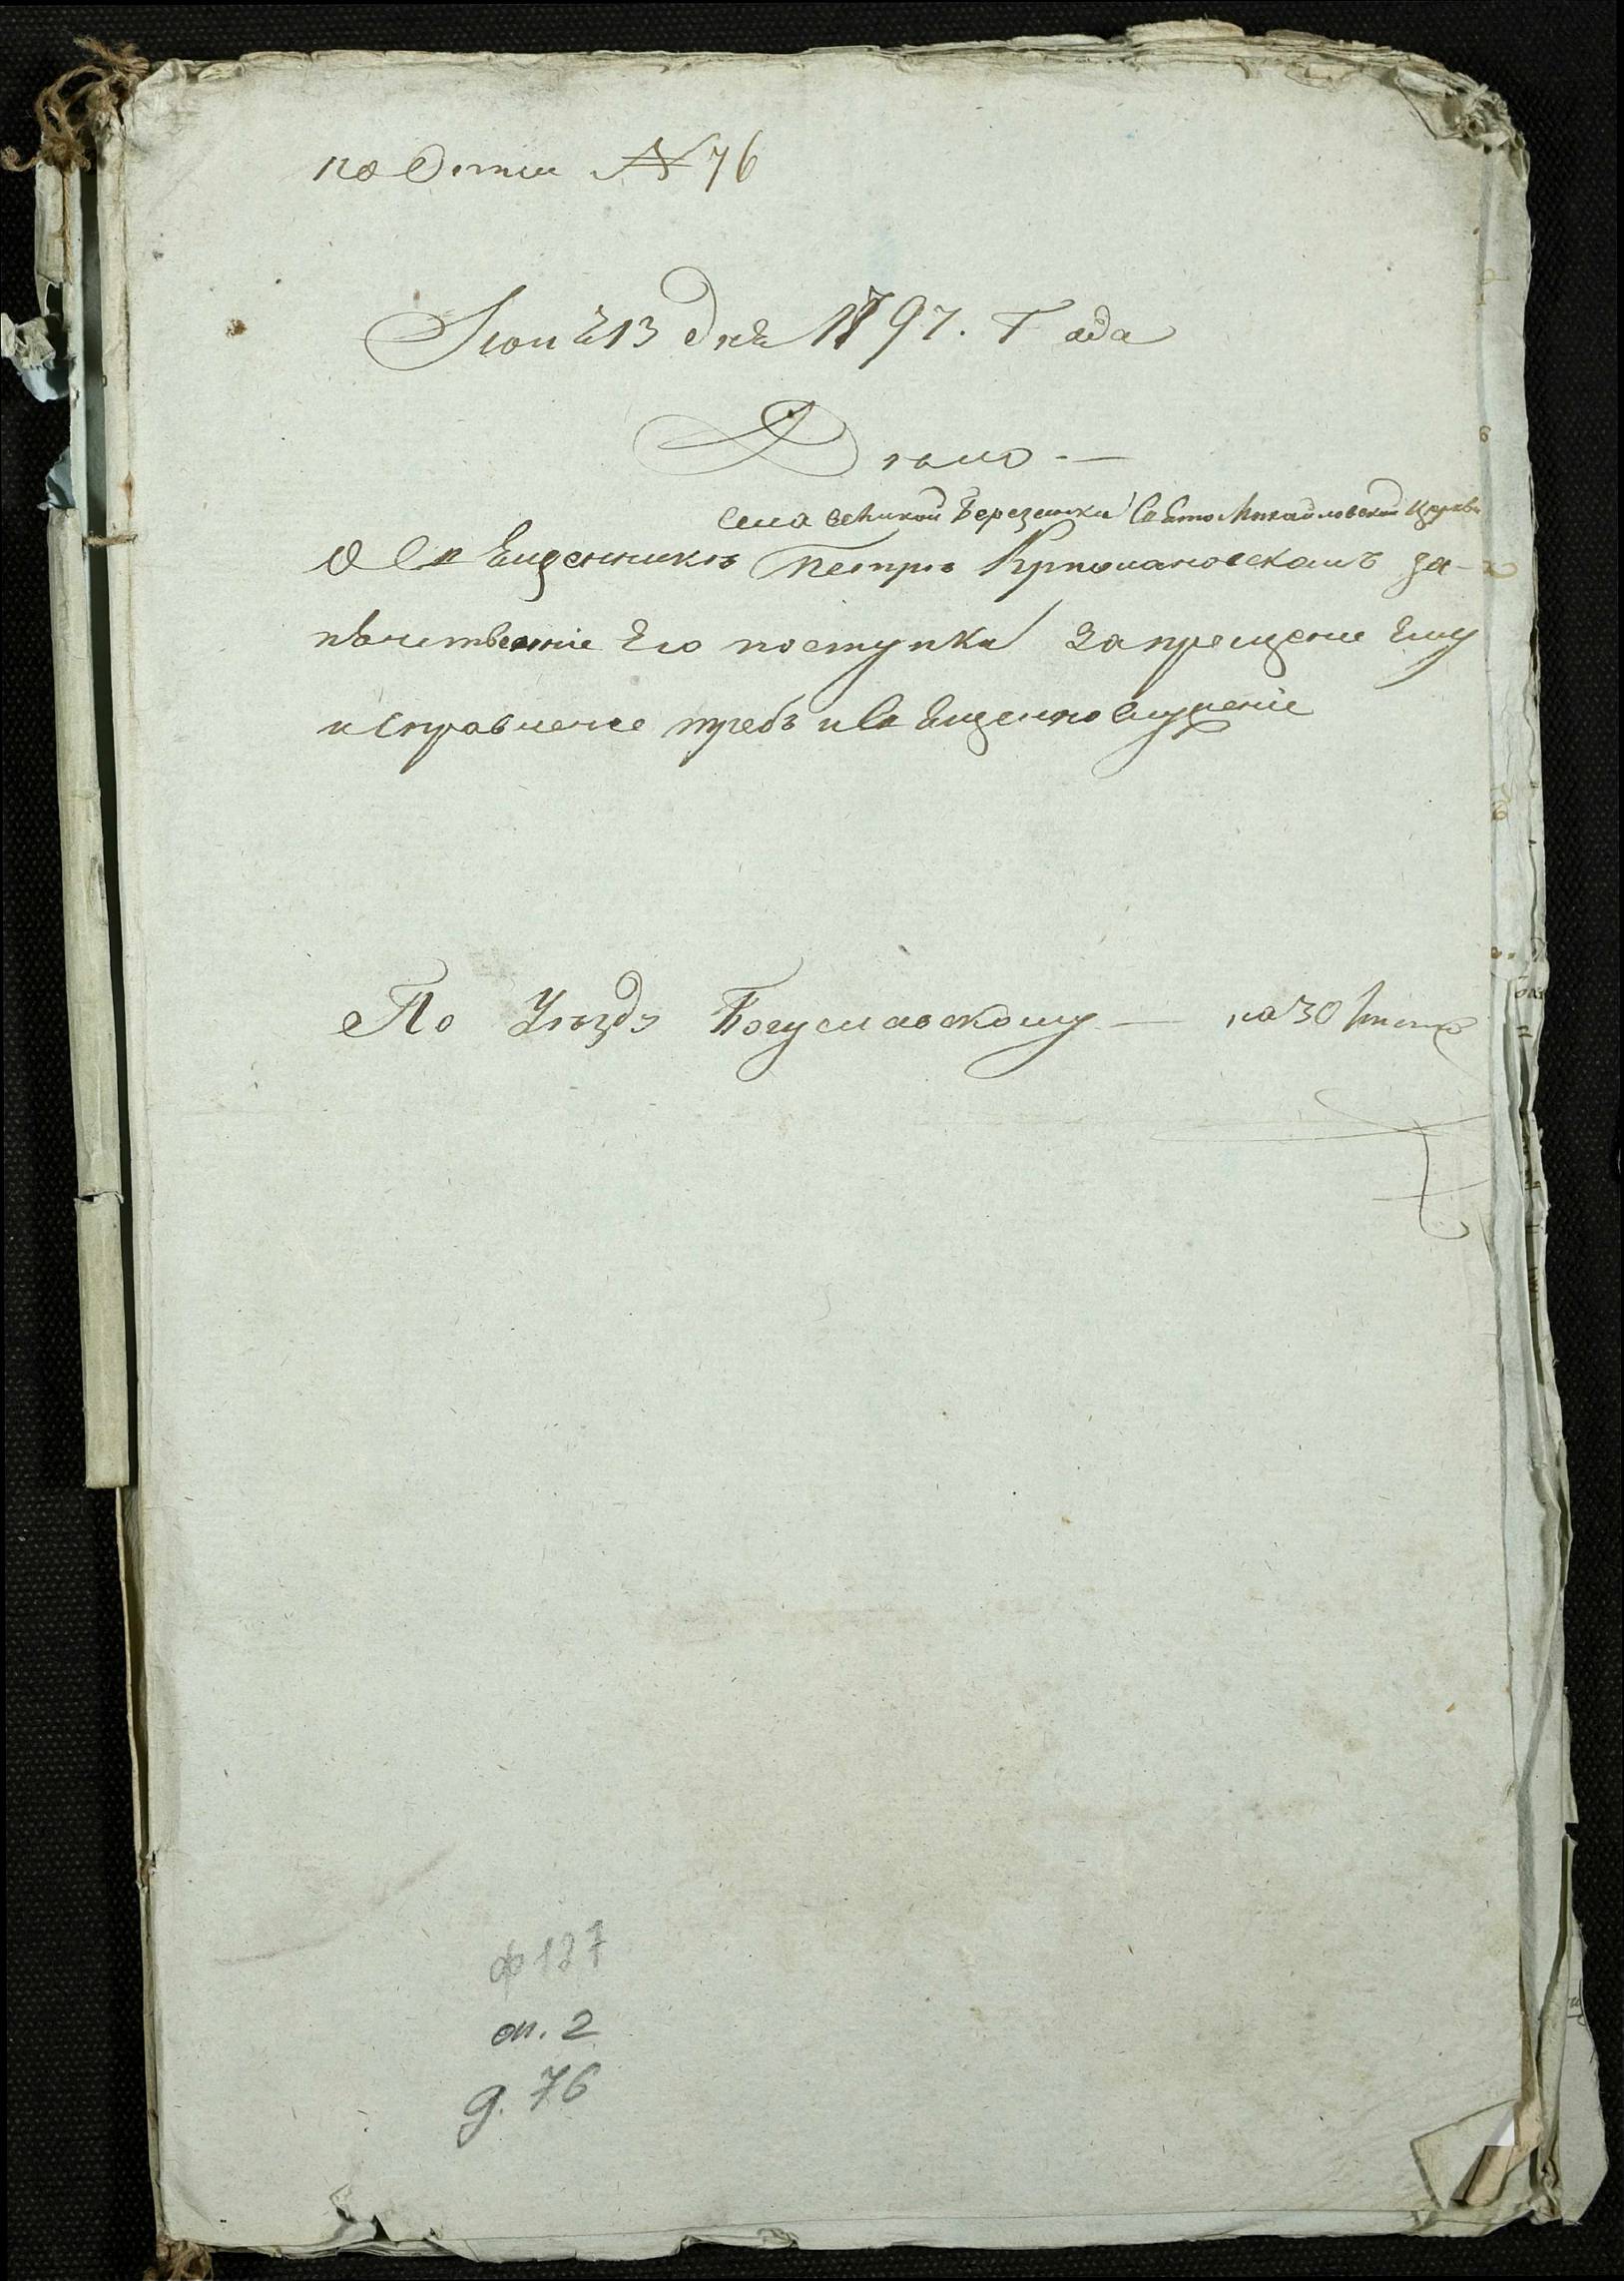 по Описи № 76
Июня 13 дня 1797. Года
Дѣло —
села великой Березянки Свято Михайловской Церкви
О Священникѣ Петрѣ Крыжановскомъ за
его поступки запрещение ему
исправление требъ и Священнослужение
По Уѣзду Богуславскому — на 30 листахъ
ф 127
оп. 2
д. 76